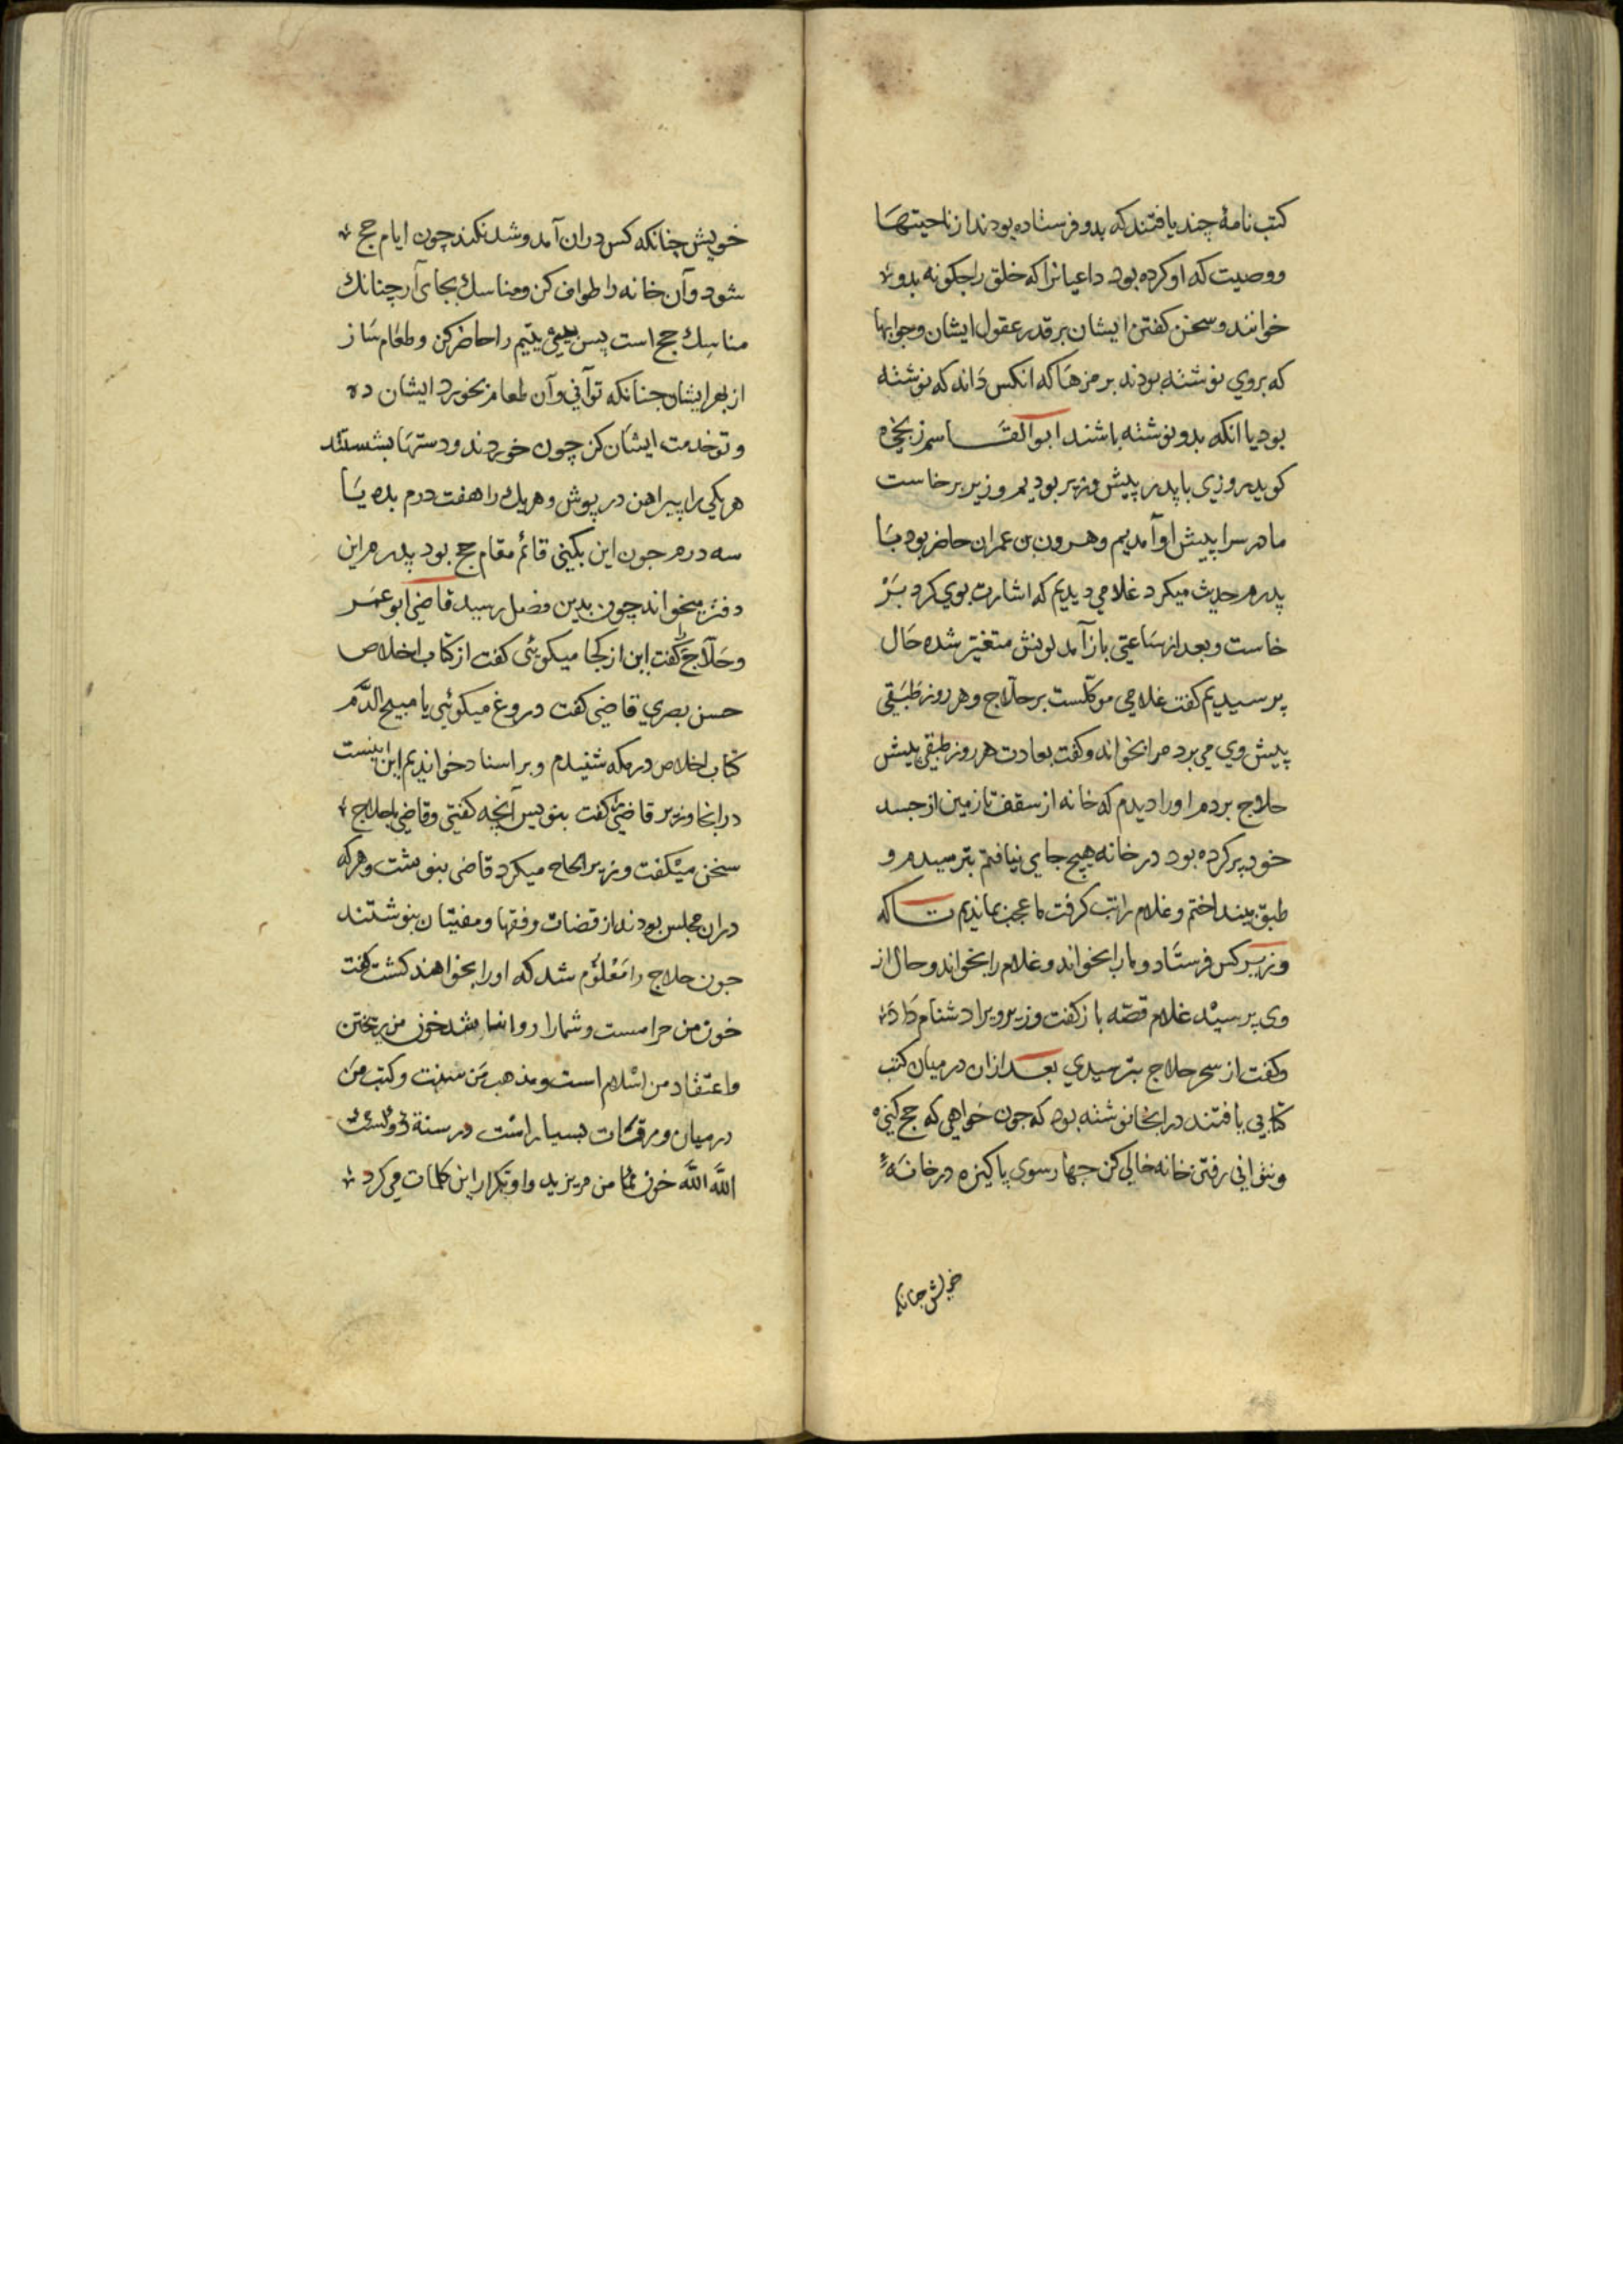 کتب نامهٔ چند یافتند که بدو فرستاده بودند از ناحیتها
ووصیت که او کرده بود داعیانرا که خلق را جکونه بدو
خوانند و سخن کفتن ایشان بر قدر عقول ایشان وجوابها
که بروي نوشته بودند برمزها که انکس داند که نوشته
بود یا انکه بدو نوشته باشند ابو القاسم زنجی
کوید روزي با پدر پیش وزیر بودیم وزیر برخاست
ما در سرا پیش او آمدیم وهرون بن عمران حاضر بود با
پدرم حدیث میکرد غلامي دیدیم که اشارت بوي کرد بر
خاست و بعد از ساعتي باز آمد لونش متغیر شده حال
پرسیدیم کفت غلامي موکلست بر حلاج وهر روز طبقي
پیش وي مي برد مرا بخواند وکفت بعادت هر روز طبقي پیش
حلاج بردم او را دیدم که خانه از سقف تا زمین از جسد
خود پر کرده بود در خانه هیچ جاي نیافتم بترسیدم و
طبق بینداختم وغلام را تب کرفت ما عجب بماندیم تا که
وزیر کس فرستاد و ما را بخواند وغلام را بخواند وحال از
وي پرسید غلام قصه باز کفت وزیر ویرا دشنام داد
وکفت از سحر حلاج بترسیدي بعد ازان در میان کتب
کتابي یافتند در انجا نوشته بود که جون خواهي که حج کني
ونتواني رفتن خانه خالي کن جهار سوي پاکیزه در خانهٔ
خویش جنانکه
خویش چنانکه کس دران آمد وشد نکند چون ایام حج
شود وآن خانه را طواف کن ومناسك بجاي آر چنانك
مناسك حج است پس سي یتیم را حاضر کن وطعام ساز
از بهر ایشان جنانکه تواني وآن طعام بخورد ایشان ده
وتو خدمت ایشان کن چون خوردند ودستها بشستند
هر یکي را پیراهن در پوش وهر یك را هفت درم بده یا
سه درم جون این بکني قائم مقام حج بود پدرم این
دفتر میخواند چون بدین فصل رسید قاضي ابو عمر
وحلاج را کفت این از کجا میکوئي کفت از کتاب اخلاص
حسن بصري قاضي کفت دروغ میکوئي یا مبیح الدم
کتاب اخلاص در مکه شنیدم وبر اسناد خواندیم این نیست
در انجا وزیر قاضي را کفت بنویس آنچه کفتي وقاضي با حلاج
سخن میکفت وزیر الحاح میکرد قاضي بنوشت وهر که
دران مجلس بودند از قضات وفقها ومفتیان بنوشتند
جون حلاج را معلوم شد که او را بخواهند کشت کفت
خون من حرامست وشما را روا نباشد خون من ریختن
واعتقاد من اسلام است ومذهب من سنت وکتب من
در میان ورقات بسیار است در سنة
الله الله خون من مریزید واو تکرار این کلمات مي کرد